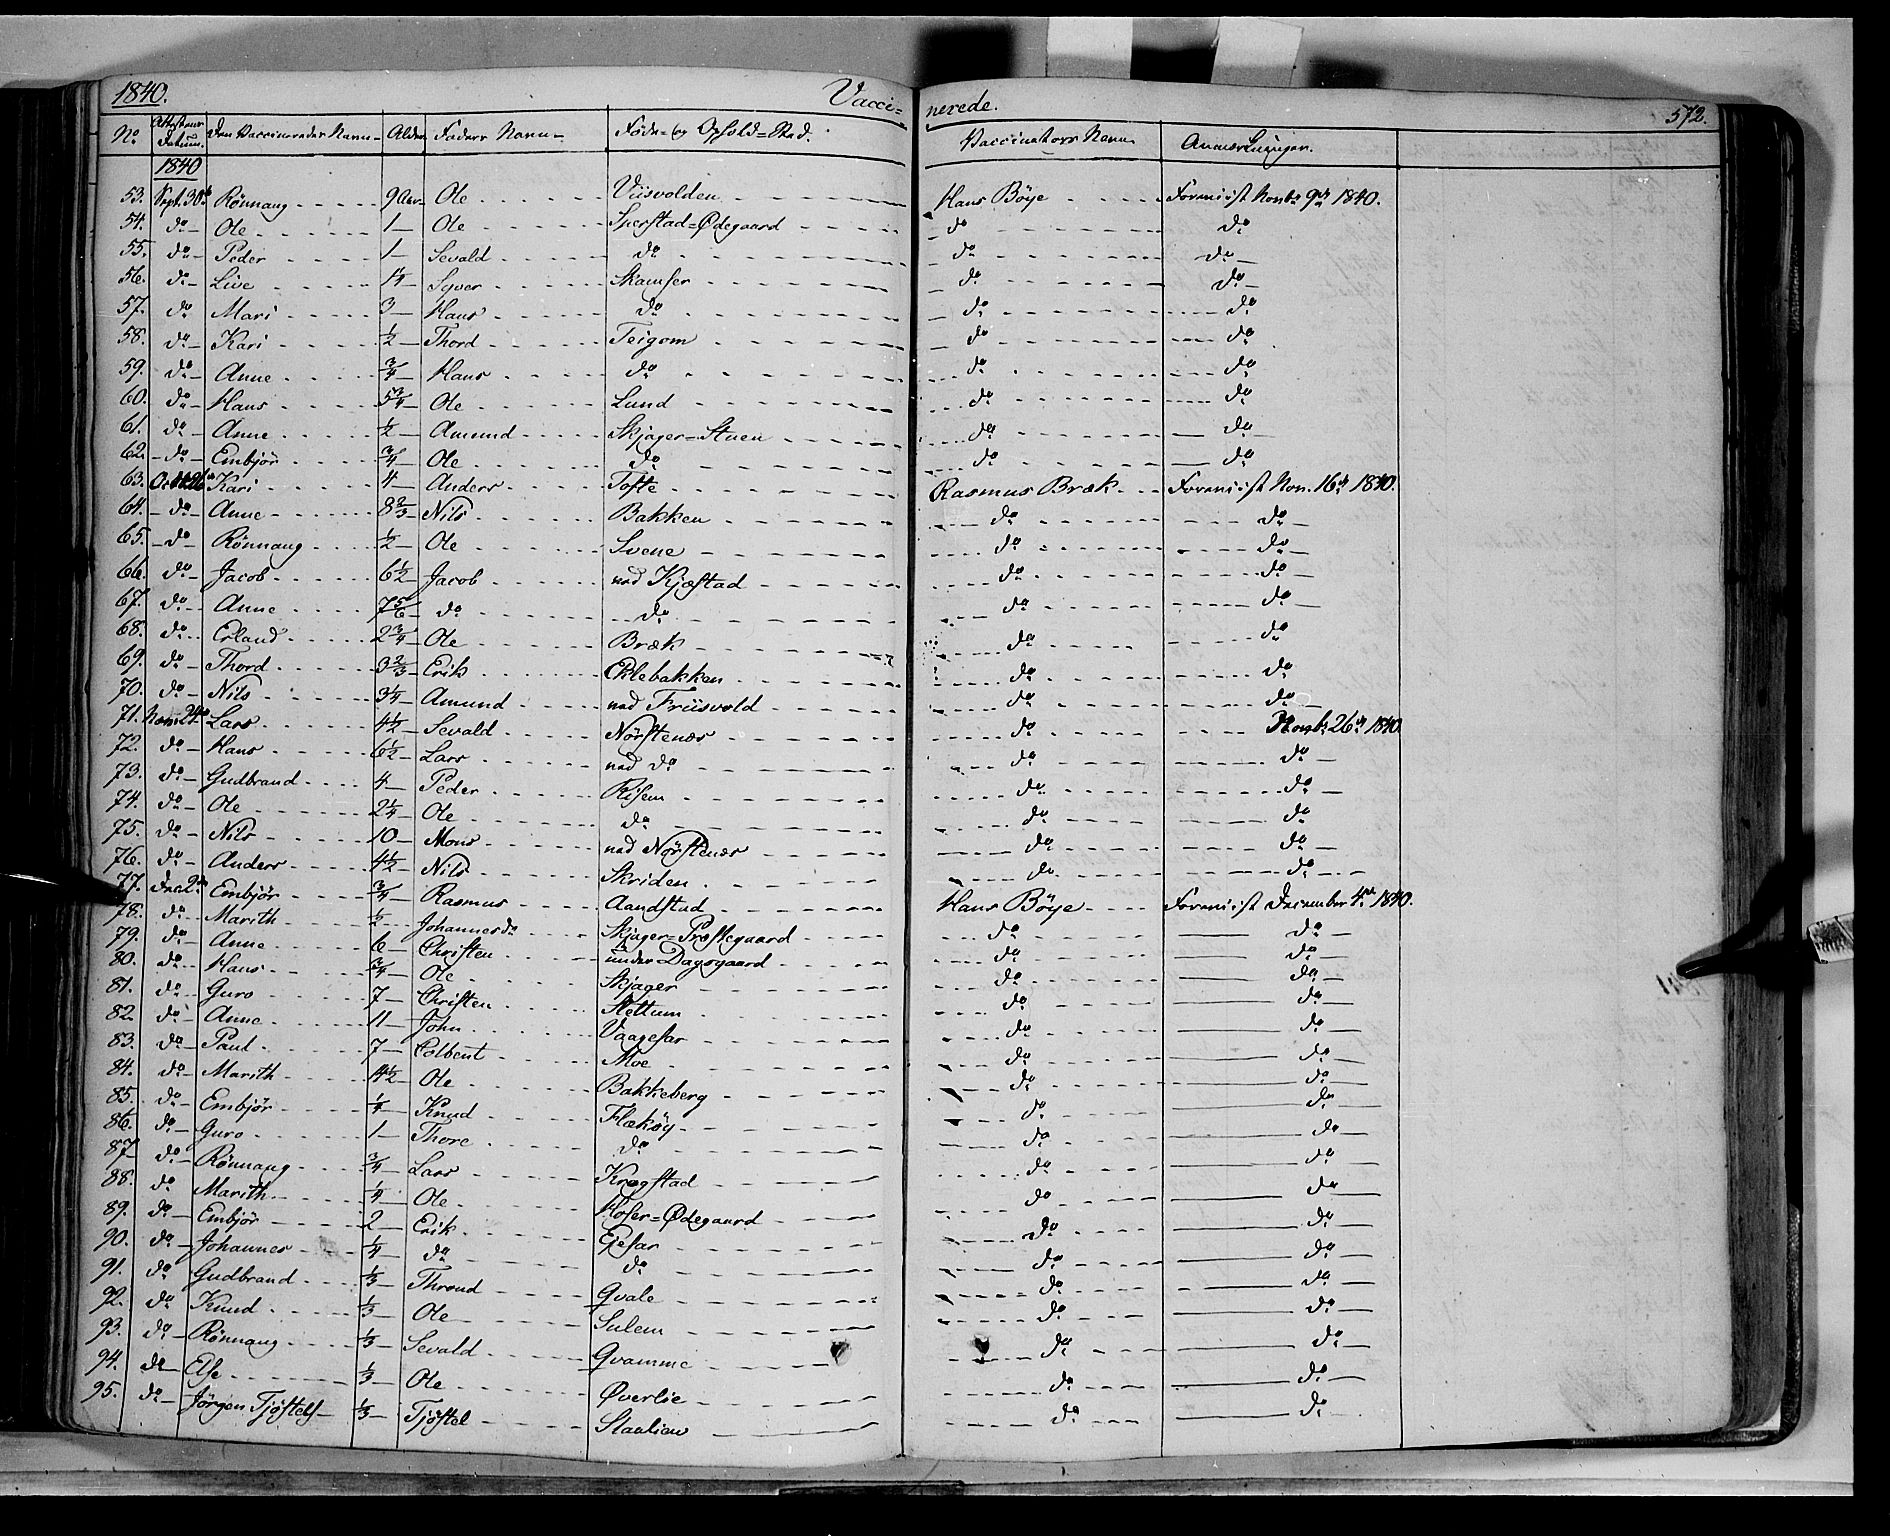 1840. Vacci= nerede. 572.
No. Attestens Datum. Den Vaccineredes Navn Alder Faders Navn Føde- og Ophold=Sted. Vaccinateurs Navn Anmærkninger.
1840
53. Sept. 30te Rönnaug 9 Aar Ole Viisvolden Hans Böye Forevist Novbr 9de 1840.
54. do Ole 1 Ole Sperstad=Ødegaard do do
55. do Peder 1 Sevald do do do
56. do Live 1/4 Syver Skamser do do
57. do Mari 3 Hans do do do
58. do Kari 1/2 Thord Teigom do do
59. do Anne 3/4 Hans do do do
60. do Hans 5 3/4 Ole Lund do do
61. do Anne 1/2 Amund Skjager=Stuen do do
62. do Embjör 3/4 Ole do do do
63. Oct 26 Kari 4 Anders Tofte Rasmus Bræk Forevist Nov. 16de 1840.
64. do Anne 8 2/3 Nils Bakken do do
65. do Rönnaug 1/2 Ole Svene do do
66. do Jacob 6 1/2 Jacob ned Kjæstad do do
67. do Anne 7 5/6 do do do do
68. do Erland 2 3/4 Ole Bræk do do
69. do Thord 3 2/3 Erik Eklebakken do do
70. do Nils 3 1/4 Amund ned Friisvold do do
71. Novr 24de Lars 4 1/2 Sevald Nörstenæs do Novbr 26de 1840.
72. do Hans 6 1/2 Lars ned do do do
73. do Gudbrand 4 Peder Risem do do
74. do Ole 2 1/4 Ole do do do
75. do Nils 10 Mons ned Nörstenæs do do
76. do Anders 4 1/2 Nils Skriden do do
77. Dec 2de Embjör 3/4 Rasmus Aandstad Hans Böye Forevist December 4de 1840.
78. do Marith 1/2 Johannes do Skjager=Præstegaard do do
79. do Anne 6 Christen under Dagsgaard do do
80. do Hans 3/4 Ole Skjager do do
81. do Guro 7 Christen Stettum do do
82. do Anne 11 John Vaagesar do do
83. do Paul 7 Colbent Moe do do
84. do Marith 4 1/2 Ole Bakkeberg do do
85. do Embjör 1/4 Knud Flækøy do do
86. do Guro 1 Thore do do do
87. do Rönnaug 3/4 Lars Krogstad do do
88. do Marith 1/4 Ole Hofer=Ødegaard do do
89. do Embjör 2 Erik Ejesar do do
90. do Johannes 1/4 do do do do
91. do Gudbrand 1/3 Thrond Qvale do do
92. do Knud 1/3 Ole Sulem do do
93. do Rönnaug 1/3 Sevald Qvamme do do
94. do Else 1/3 Ole Øverlie do do
95. do Jörgen Tjöstels 1/3 Tjöstel Staalien do do